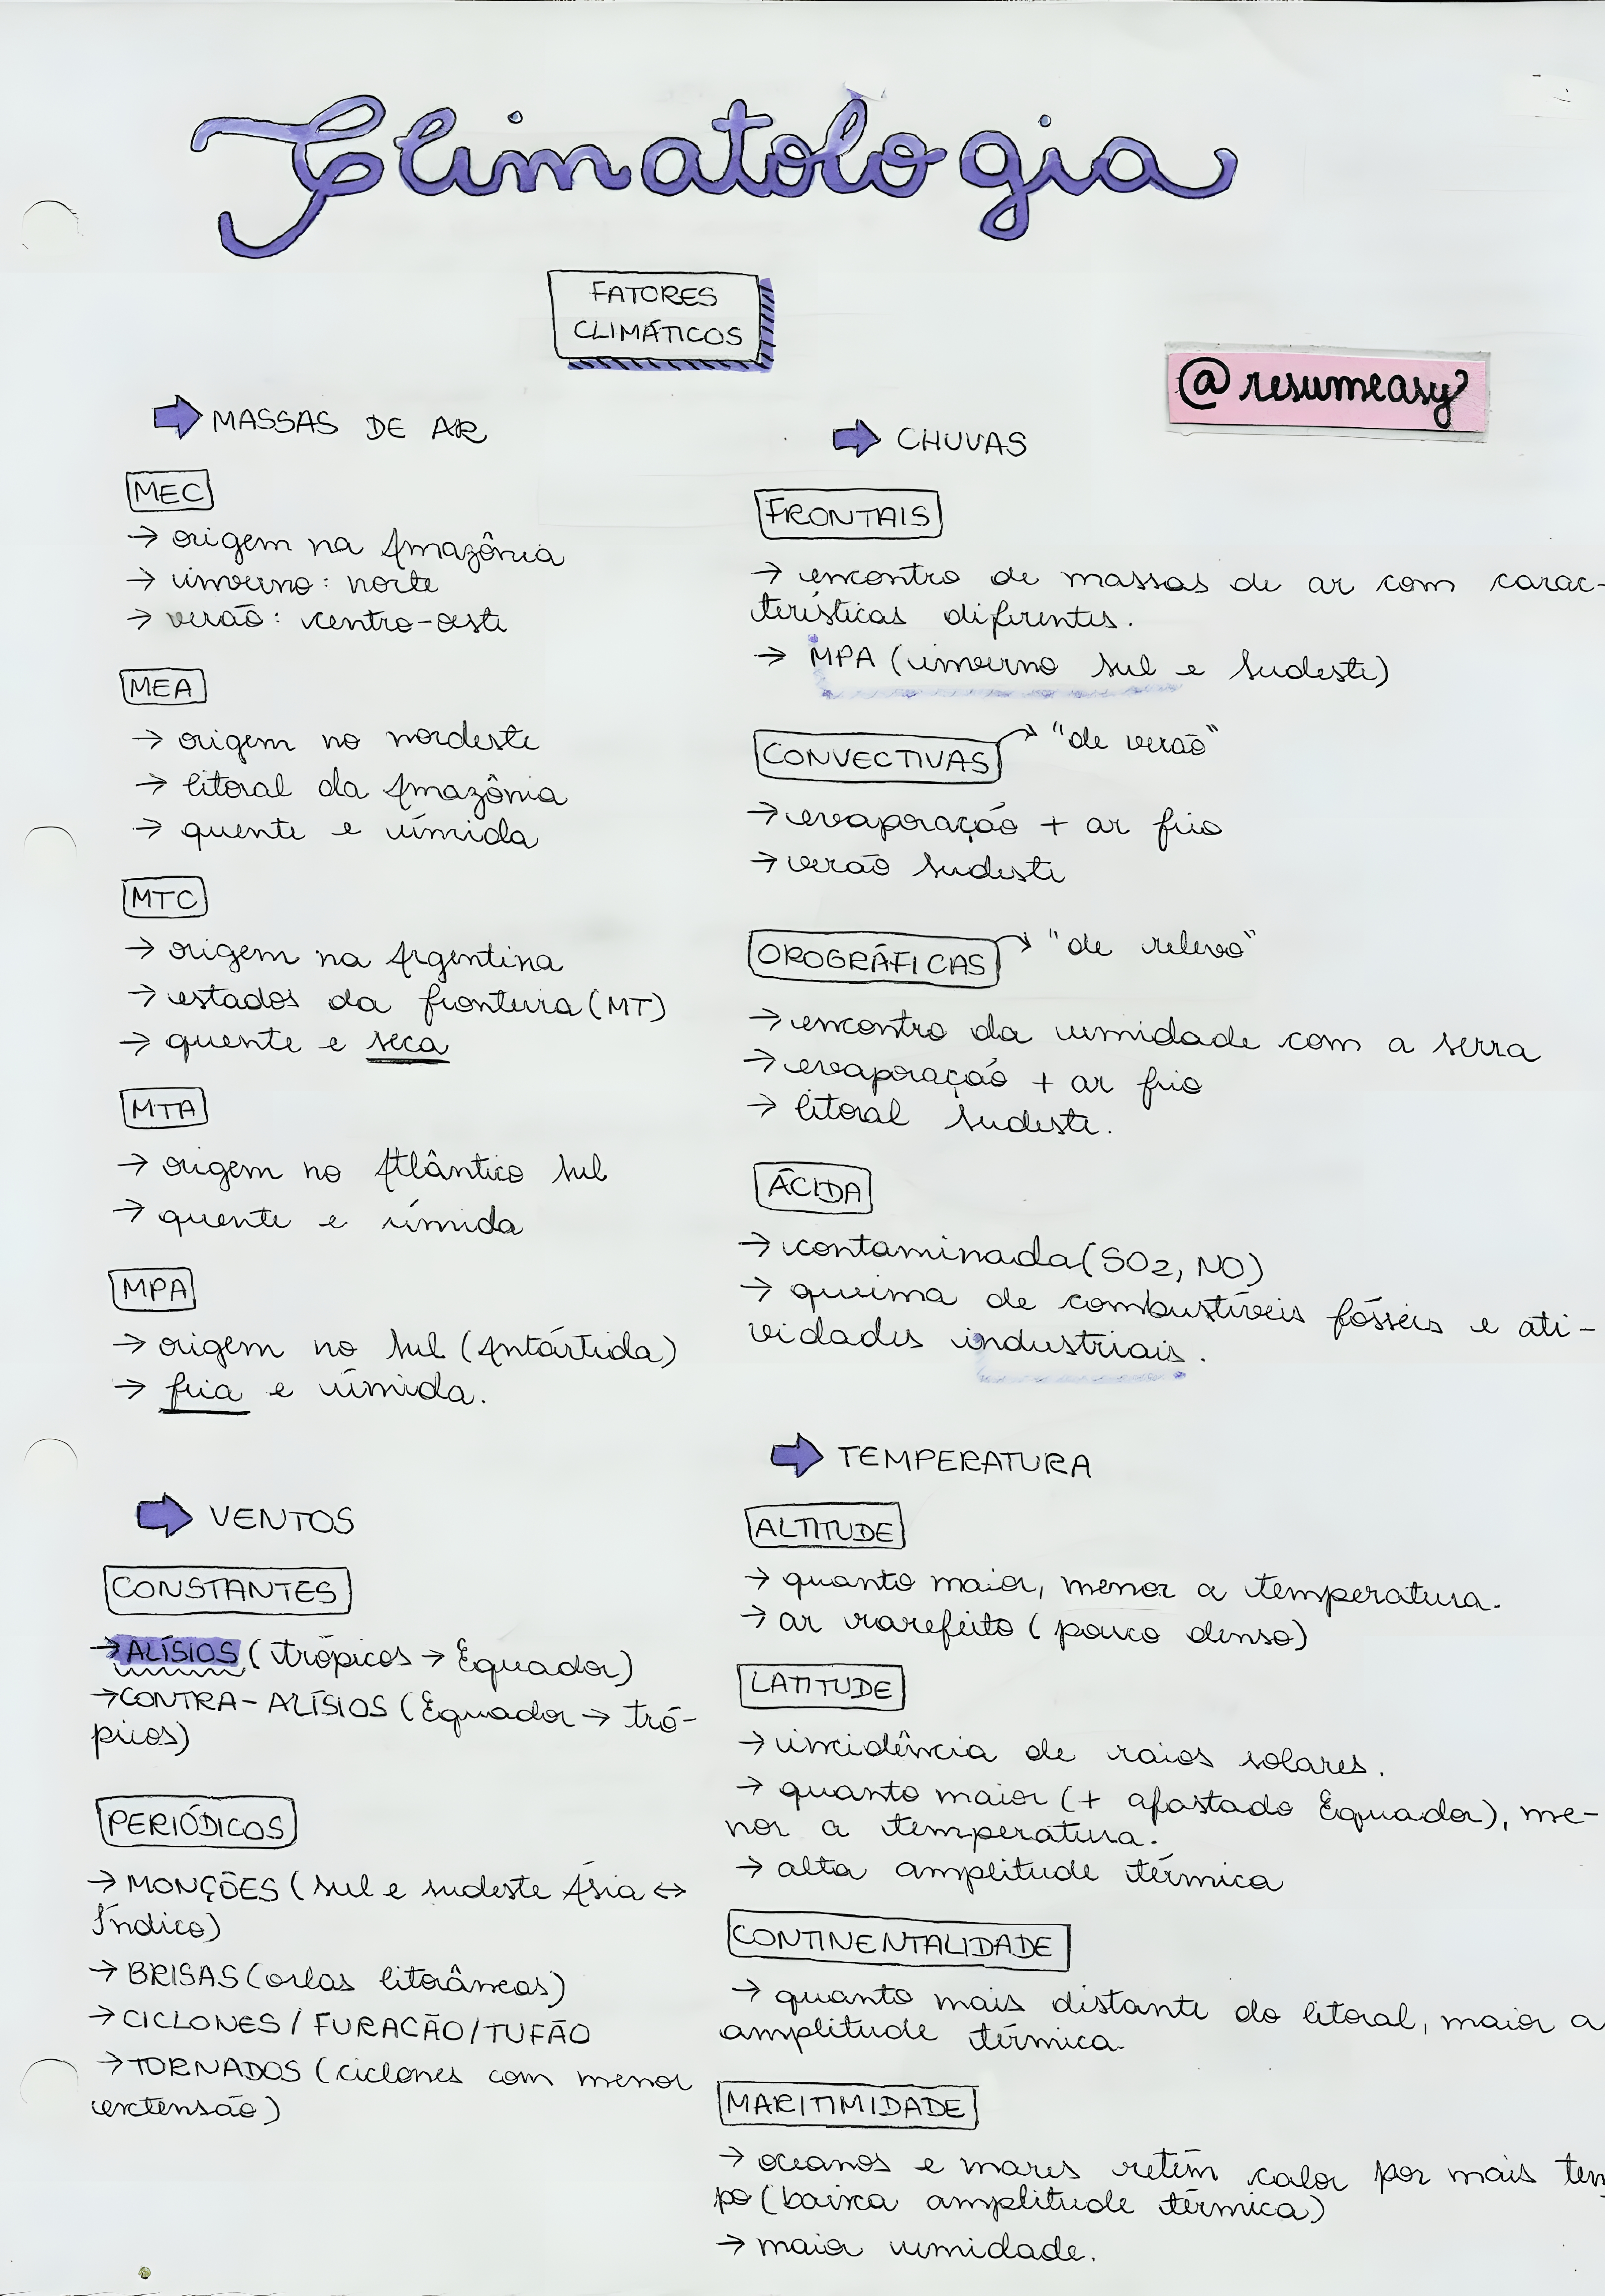 Climatologia
FATORES
CLIMÁTICOS
@resumeasy
MASSAS DE AR
MEC
→ origem na Amazônia
→ inverno: norte
→ verão: centro-oeste
MEA
→ origem no nordeste
→ litoral da Amazônia
→ quente e úmida
MTC
→ origem na Argentina
→ estados da fronteira (MT)
→ quente e seca
MTA
→ origem no Atlântico Sul
→ quente e úmida
MPA
→ origem no Sul (Antártida)
→ fria e úmida.
VENTOS
CONSTANTES
→ ALÍSIOS (trópicos → Equador)
→ CONTRA-ALÍSIOS (Equador → tró-
picos)
PERIÓDICOS
→ MONÇÕES (sul e sudeste Ásia ↔
Índico)
→ BRISAS (orlas litorâneas)
→ CICLONES / FURACÃO/TUFÃO
→ TORNADOS (ciclones com menor
extensão)
CHUVAS
FRONTAIS
→ encontro de massas de ar com carac-
terísticas diferentes.
→ MPA (inverno Sul e Sudeste)
CONVECTIVAS → "de verão"
→ evaporação + ar frio
→ verão Sudeste
OROGRÁFICAS → "de relevo"
→ encontro da umidade com a serra
→ evaporação + ar frio
→ litoral Sudeste.
ÁCIDA
→ contaminada (SO2, NO)
→ queima de combustíveis fósseis e ati-
vidades industriais.
TEMPERATURA
ALTITUDE
→ quanto maior, menor a temperatura.
→ ar rarefeito (pouco denso)
LATITUDE
→ incidência de raios solares.
→ quanto maior (+ afastado Equador), me-
nor a temperatura.
→ alta amplitude térmica
CONTINENTALIDADE
→ quanto mais distante do litoral, maior a
amplitude térmica.
MARITIMIDADE
→ oceanos e mares retém calor por mais tem
po (baixa amplitude térmica)
→ maior umidade.